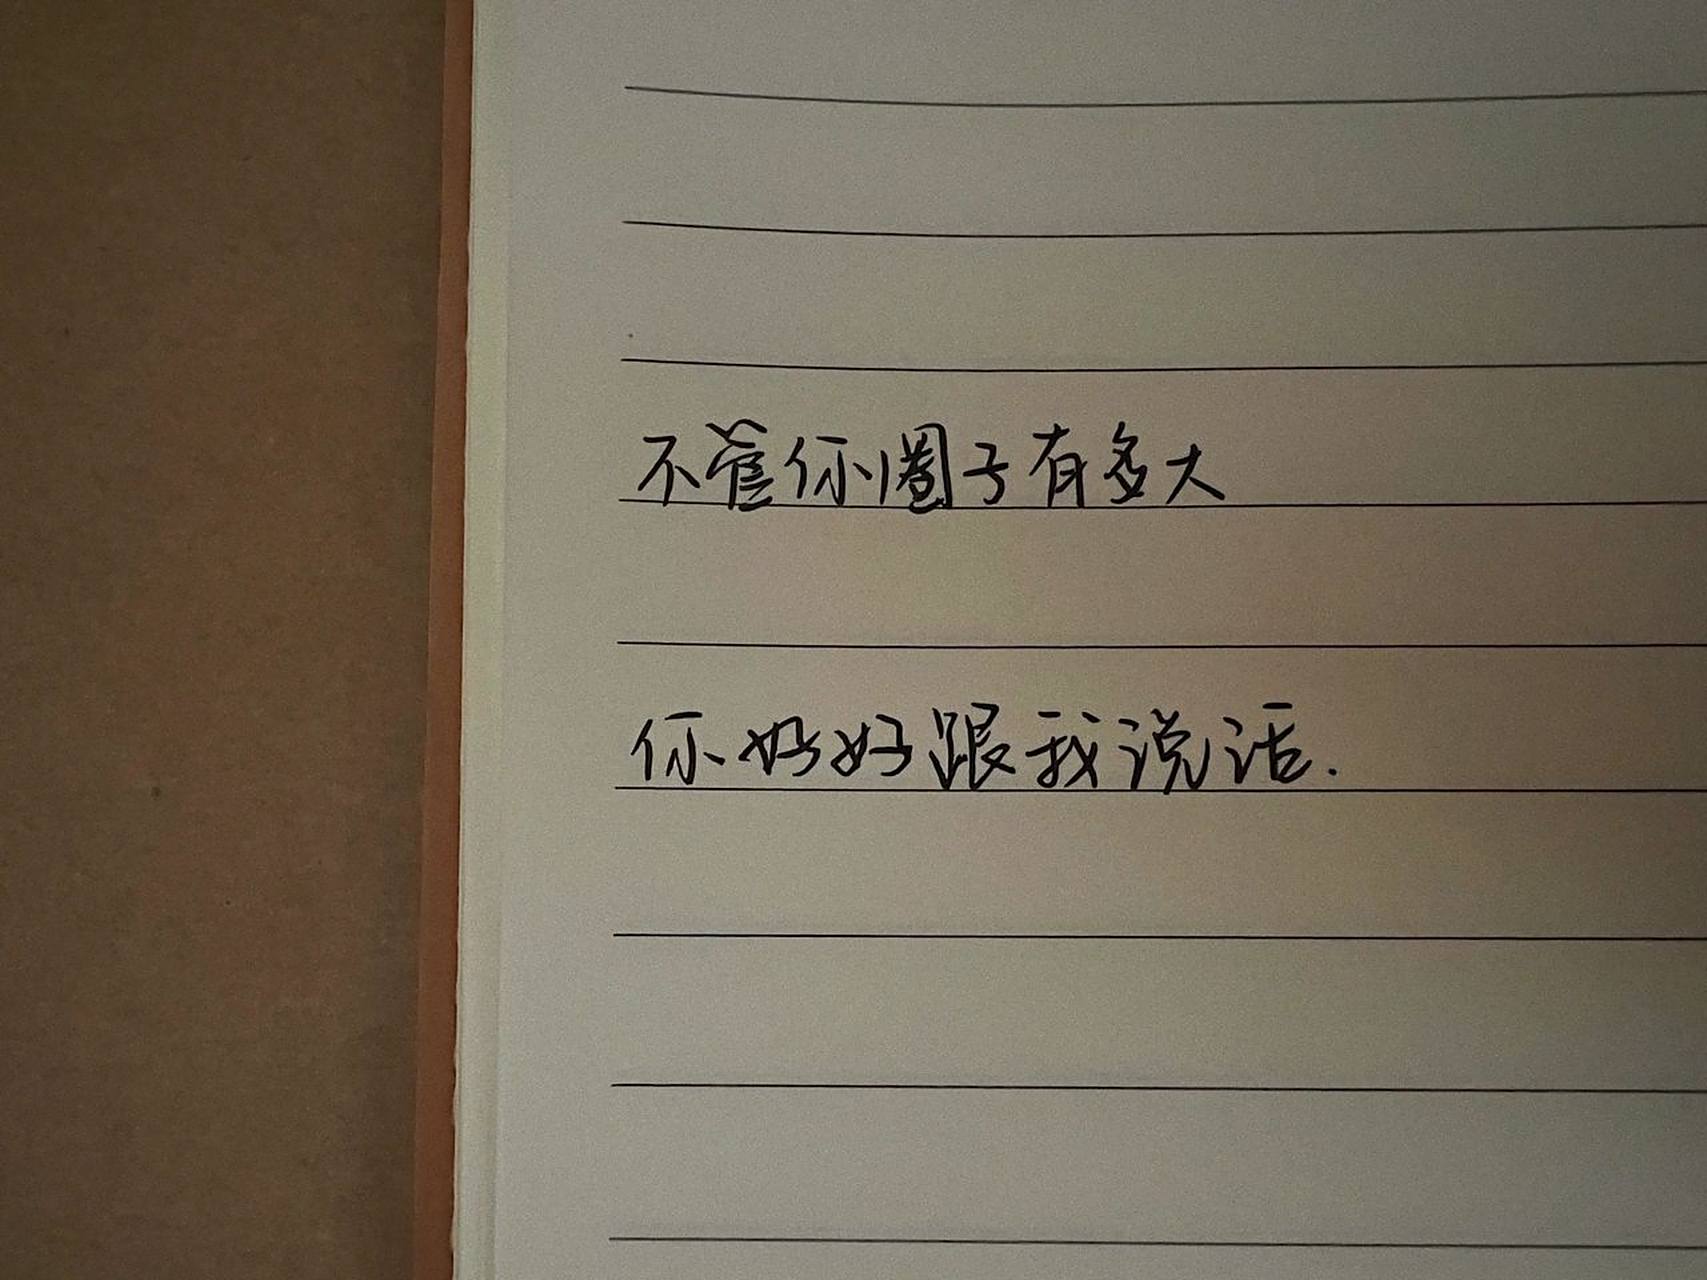 不管你圈子有多大
你好好跟我说话.